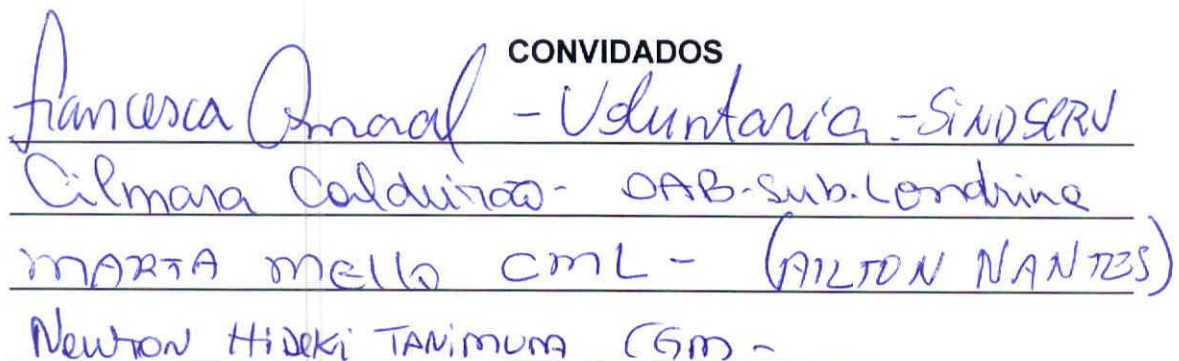 CONVIDADOS
Francesca Amaral - Voluntaria - SINDSERV
Cilmara Caldeirão - OAB-Sub. Londrina
MARTA MELLO CML - (AILTON NANTES)
NEWTON HIDEKI TANIMURA CGM -